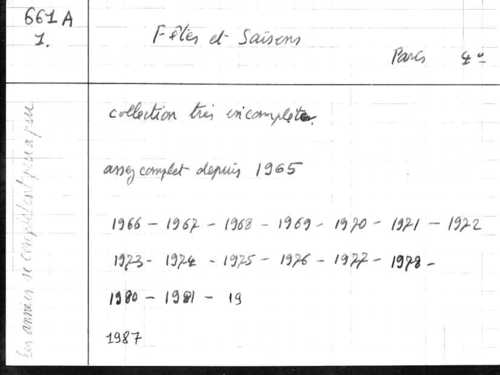 661 A
1.
Fêtes et Saisons
Paris 4°
collection très incomplète.
assez complet depuis 1965
1966 - 1967 - 1968 - 1969 - 1970 - 1971 - 1972
1973 - 1974 - 1975 - 1976 - 1977 - 1978 -
1980 - 1981 - 19
1987
Les années se complètent peu à peu